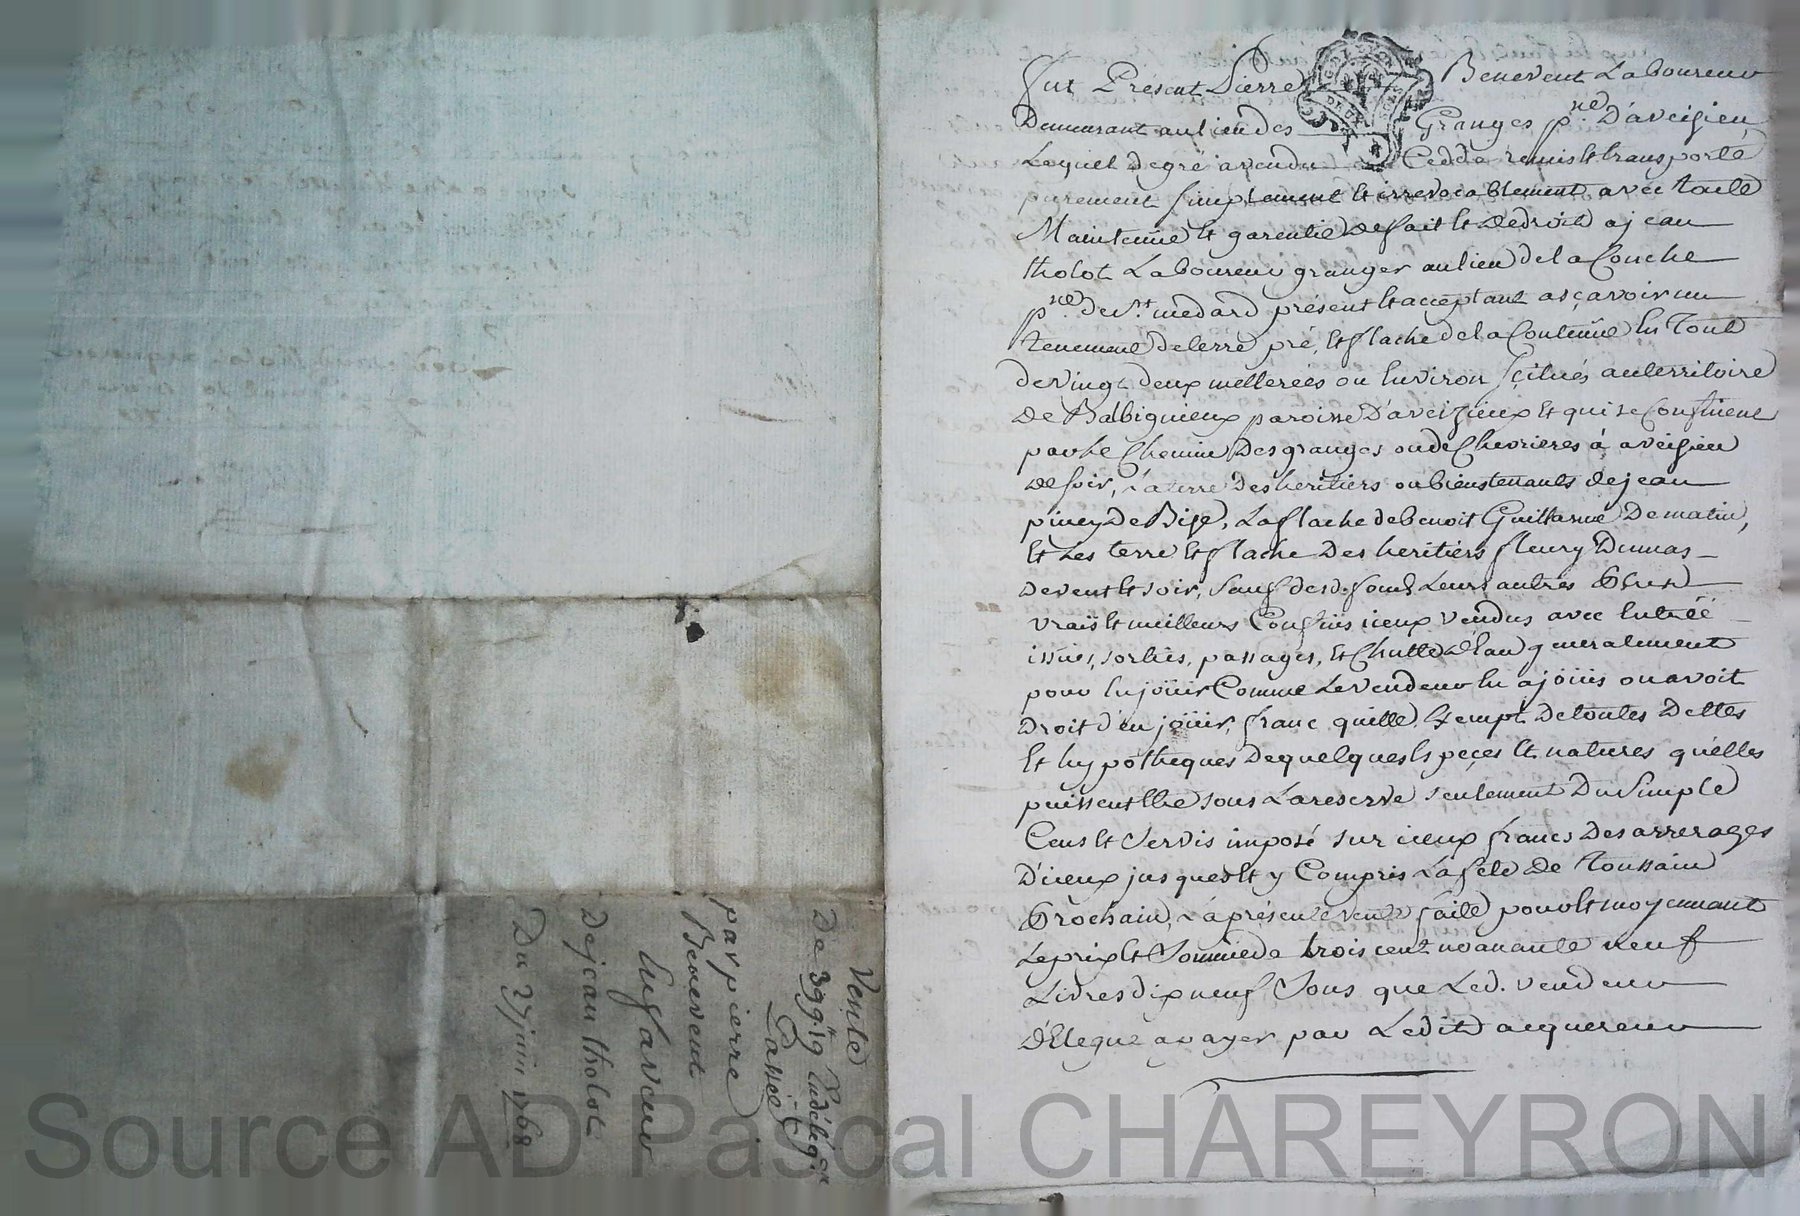 Vente
De 399# 19s En délégon
Passée
par pierre
Benevent
En faveur
De jean tholot
Du 27 juin 1768
fut Présent Pierre Benevent Laboureur
Demeurant au lieu des Granges psse. D'aveisieu
Lequel de gré a vendu Ceddé remis et transporté
purement simplement et irrevocablement avec toute
Maintenüe et garentie de fait et de droit a jean
tholot Laboureur granger au lieu de la Conche
psse. de st. medard présent et acceptant asçavoir un
tenement de terre pré, et flache de la Contenüe En Tout
de vingt deux metterées ou Environ sçitués au territoire
de Balbignieux paroisse D'aveizieux et qui se Confinent
par le Chemin Des granges ou de Chevrieres à aveisieu
de soir, La terre Des heritiers ou bienstenants de jean
piney De Bise, La flache de benoit Guillaume De matin,
Et Les terre Et flache Des heritiers fleury Dumas
De vent et soir, sauf desd. fonds Leurs autres Plus
vrais et meilleurs Confins iceux vendus avec Entrée
issües, sorties, passages, et Chutte d'Eau generalement
pour En joüir Comme Le vendeur En a joüis ou avoit
Droit d'en joüir, franc quitte, Exempt De toutes Dettes
Et hypotheques De quelques Especes Et natures qu'elles
puissent Etre sous La reserve seulement Du Simple
Cens et Servis imposé sur iceux francs Des arrerages
D'iceux jusques Et y Compris La fete de Toussain
Prochain, La présente vente faite pour Et moyennant
Le prix Et Somme de trois cent nonante neuf
Livres dix neuf Sous que Led. vendeur
Délegue a payer par Ledit acquereur
Source AD Pascal CHAREYRON